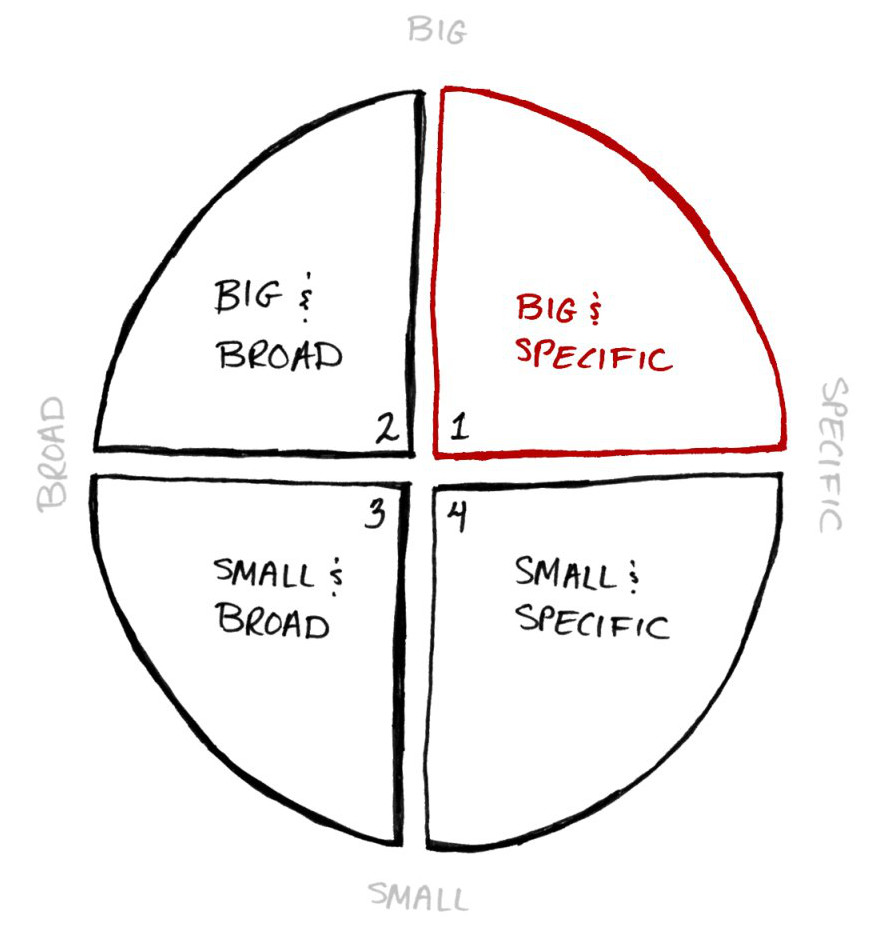 BIG
BIG &
BROAD
2
BIG &
SPECIFIC
1
BROAD
SPECIFIC
3
SMALL &
BROAD
4
SMALL &
SPECIFIC
SMALL